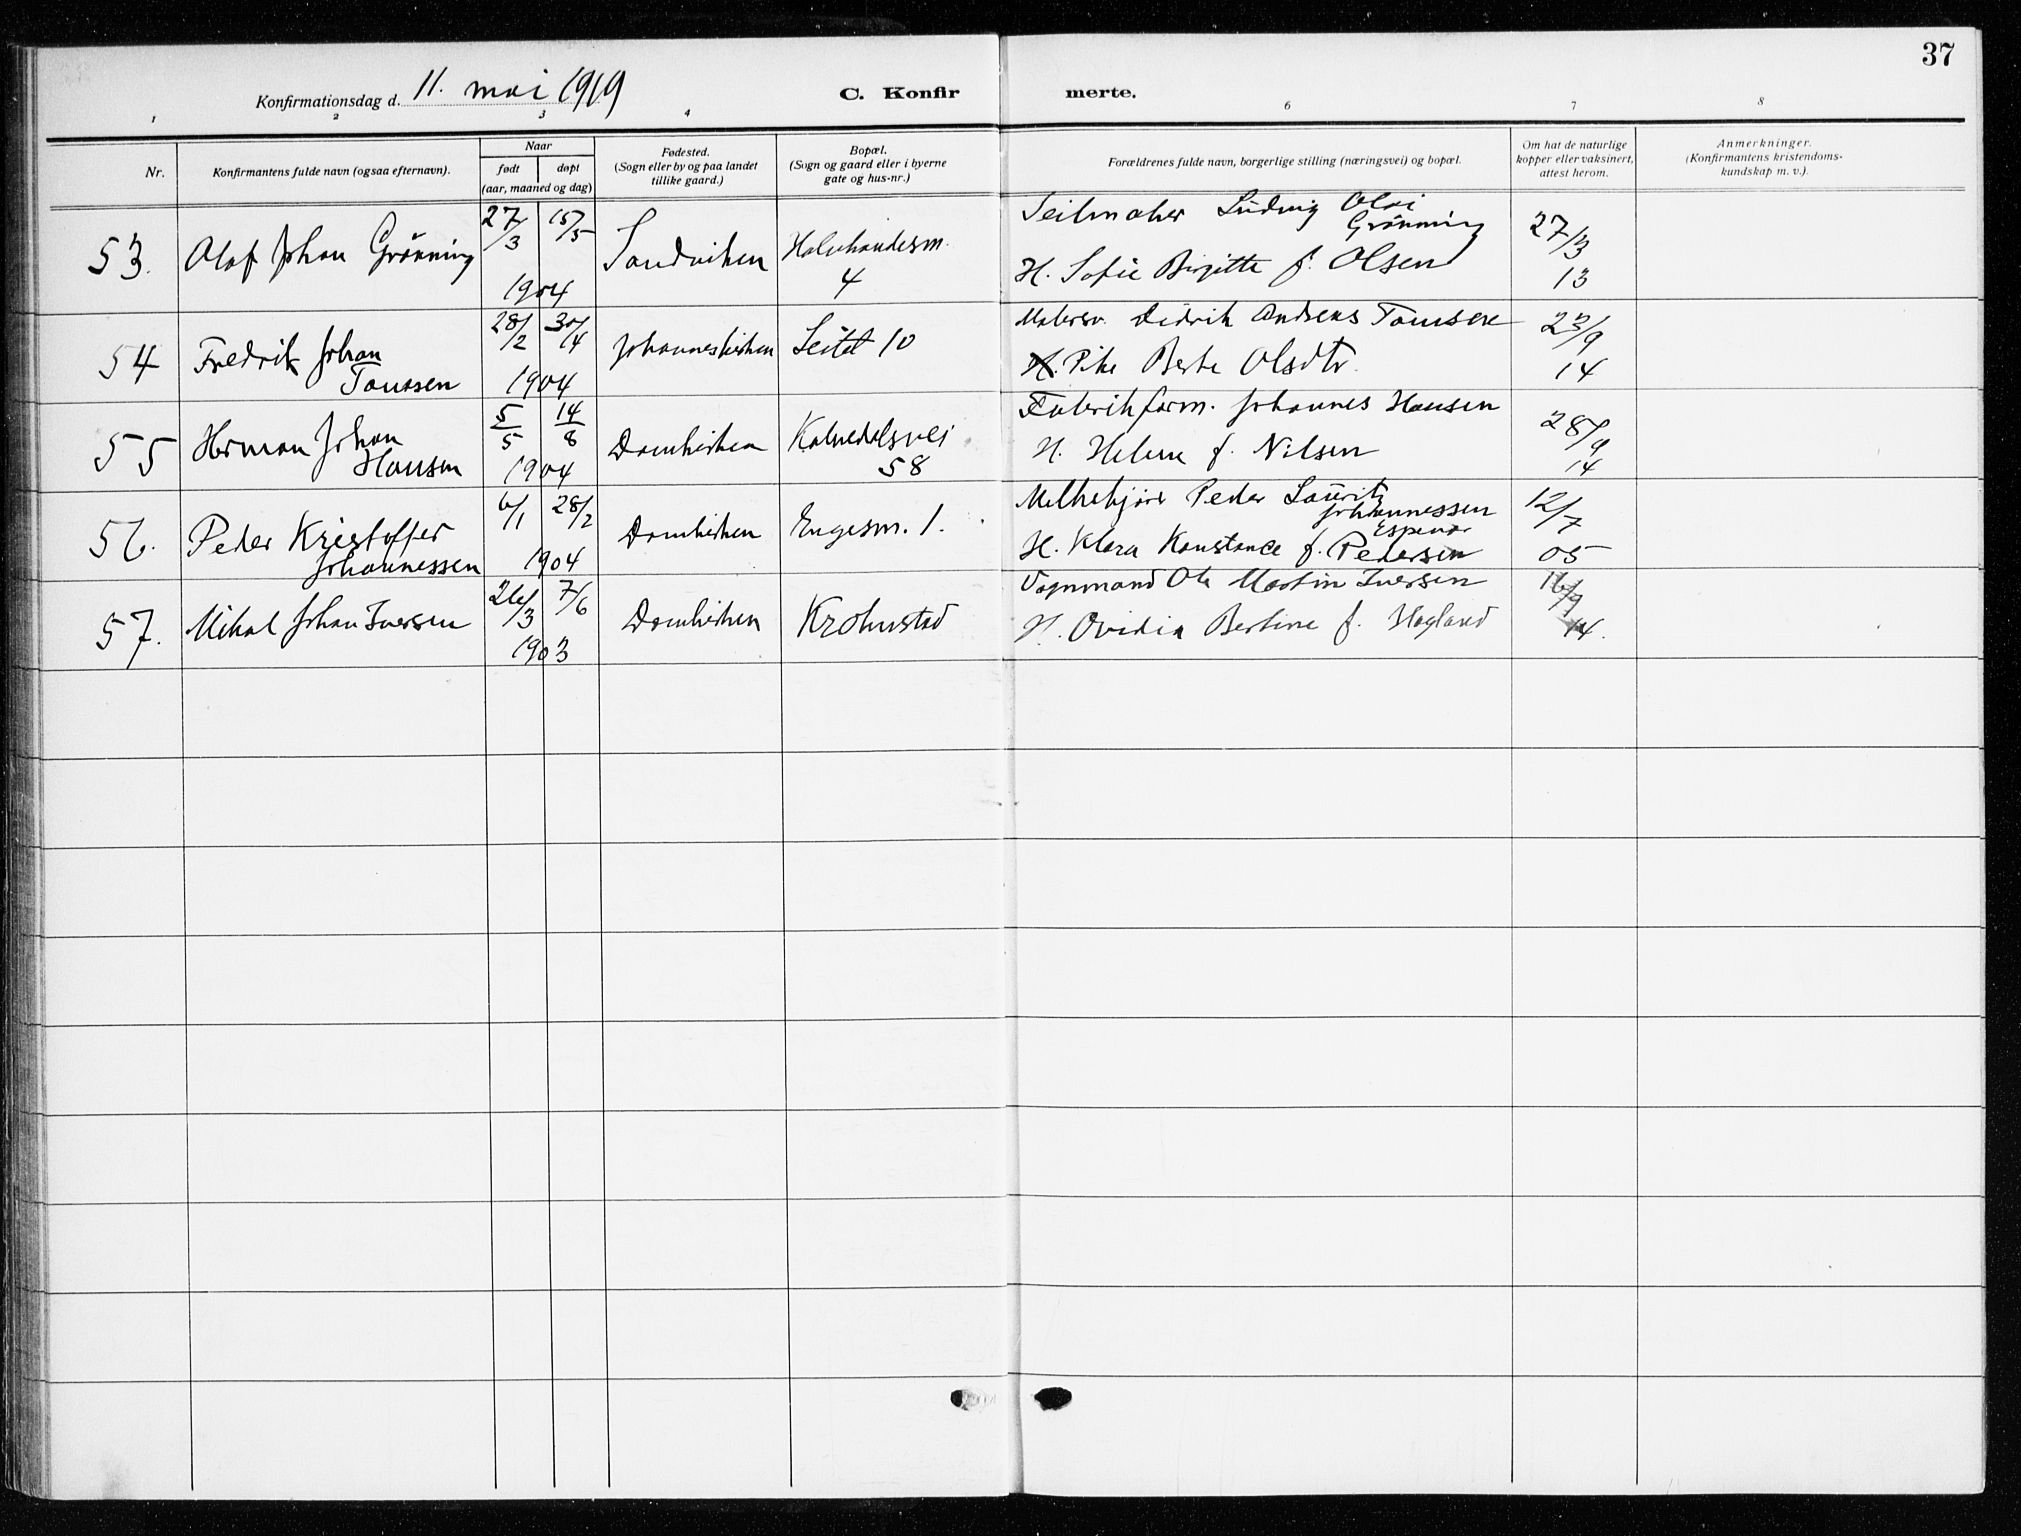 37
Konfirmationsdag d. 11. mai 1919
C. Konfirmerte.
1 2 3 4 6 7 8
Nr.
Konfirmantens fulde navn (ogsaa efternavn).
Naar
født døpt
(aar, maaned og dag)
Fødested.
(Sogn eller by og paa landet
tillike gaard.)
Bopæl.
(Sogn og gaard eller i byerne
gate og hus-nr.)
Forældrenes fulde navn, borgerlige stilling (næringsvei) og bopæl.
Om hat de naturlige
kopper eller vaksinert,
attest herom.
Anmerkninger.
(Konfirmantens kristendoms-
kundskap m. v.).
53. Olaf Johan Grönning
27/3 15/5
1904
Sandviken
4
Seilmaker Ludvig Olai
Grönning
H. Sofie Birgitte f. Olsen
27/3
13
54 Fredrik Johan
Tonssen
28/2 30/4
1904
Johanneskirken
Leitet 10
Didrik Andreas
H. Pike Berte Olsdtr.
23/9
14
55 Herman Johan
Hansen
5/5 14/8
1904
Domkirken
Kalvedalsvei
58
Fabrikform. Johannes Hansen
H. Helene f. Nilsen
28/9
14
56. Peder Kristoffer
Johannessen
6/1 28/2
1904
Domkirken
Engesm. 1.
Melkekjörer Peder Lauritz
Johannessen
Espenær
H. Klara Konstance f. Pedersen
12/7
05
57. Mikal Johan Iversen
26/3 7/6
1903
Domkirken
Krohnstad
Vognmand Ole Martin Iversen
H. Ovidia Bertine f. Hagland
16/9
14.